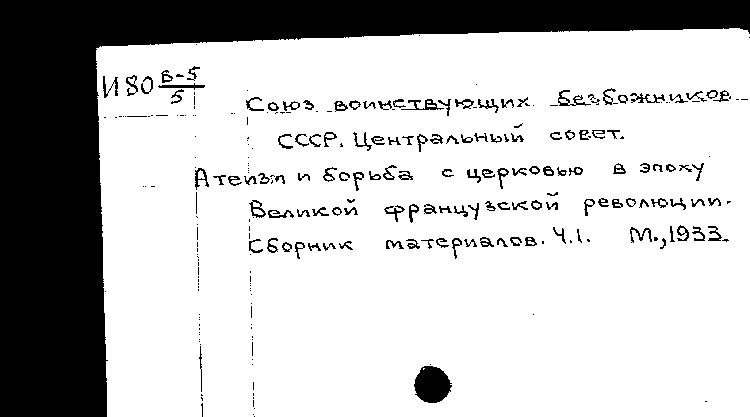 И80 В-5/5
Союз воинствующих безбожников
СССР. Центральный совет.
Атеизм и борьба с церковью в эпоху
Великой французской революции.
Сборник материалов. Ч.1. М., 1933.